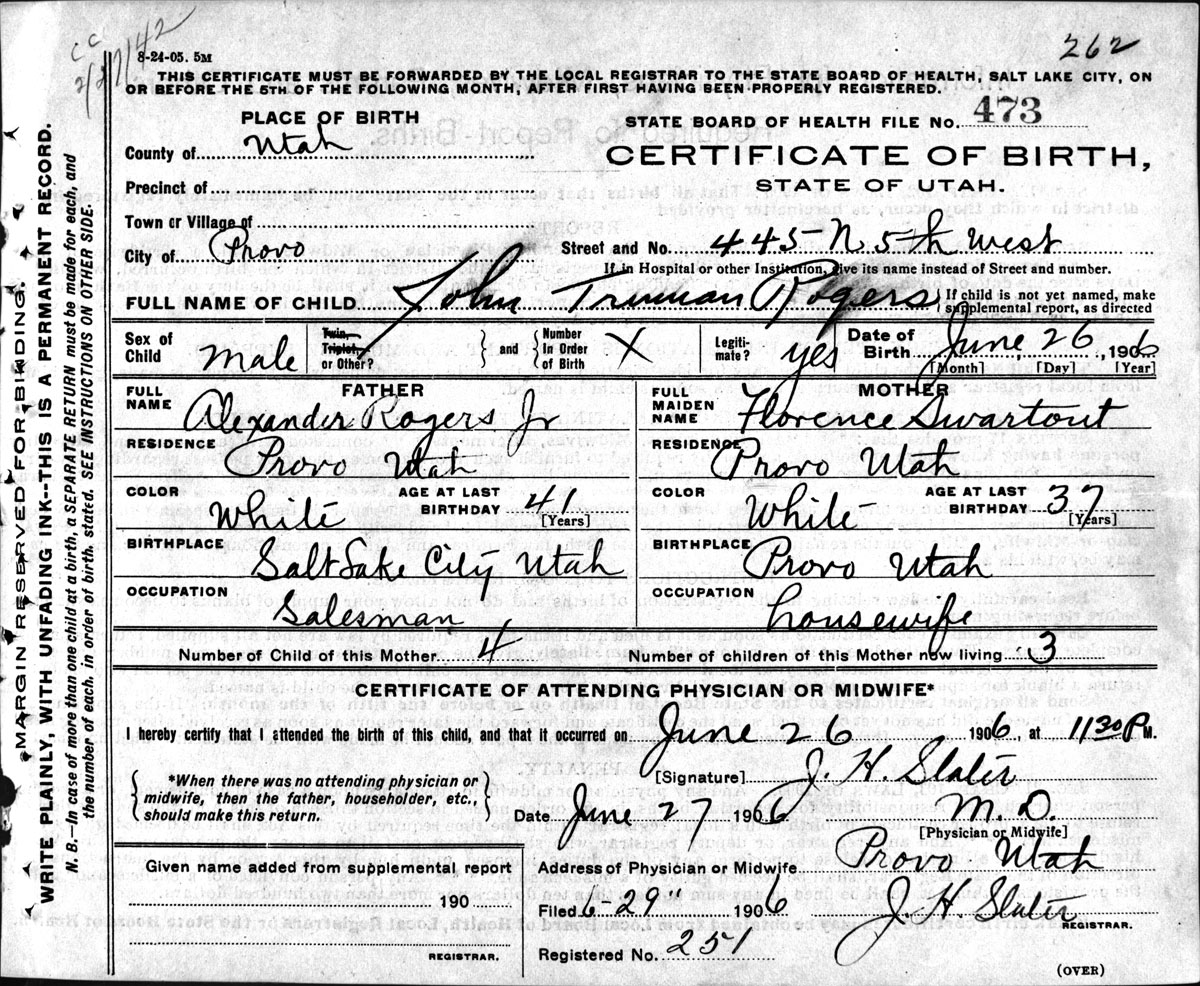 CC
2/27/42
262
8-24-05. 5M
THIS CERTIFICATE MUST BE FORWARDED BY THE LOCAL REGISTRAR TO THE STATE BOARD OF HEALTH, SALT LAKE CITY, ON
OR BEFORE THE 5TH OF THE FOLLOWING MONTH, AFTER FIRST HAVING BEEN PROPERLY REGISTERED.
PLACE OF BIRTH
STATE BOARD OF HEALTH FILE No. 473
County of Utah
CERTIFICATE OF BIRTH,
STATE OF UTAH.
Precinct of
Town or Village of
City of Provo
Street and No. 445 N. 5th West
If in Hospital or other Institution, give its name instead of Street and number.
FULL NAME OF CHILD John Truman Rogers If child is not yet named, make supplemental report, as directed
Sex of Child male Twin, Triplet, or Other? and Number In Order of Birth X Legiti-mate? yes Date of Birth June, 26, 1906
[Month] [Day] [Year]
FATHER MOTHER
FULL NAME Alexander Rogers Jr FULL MAIDEN NAME Florence Swartout
RESIDENCE Provo Utah RESIDENCE Provo Utah
COLOR White AGE AT LAST BIRTHDAY 41 [Years] COLOR White AGE AT LAST BIRTHDAY 37 [Years]
BIRTHPLACE Salt Lake City Utah BIRTHPLACE Provo Utah
OCCUPATION Salesman OCCUPATION housewife
Number of Child of this Mother 4 Number of children of this Mother now living 3
CERTIFICATE OF ATTENDING PHYSICIAN OR MIDWIFE*
I hereby certify that I attended the birth of this child, and that it occurred on June 26 1906, at 11 30 P. M.
*When there was no attending physician or
midwife, then the father, householder, etc.,
should make this return.
[Signature] J. H. Slater
Date June 27 1906 M. D.
[Physician or Midwife]
Give name added from supplemental report
190
REGISTRAR.
Address of Physician or Midwife Provo Utah
Filed 6-29" 1906 J. H. Slater
REGISTRAR.
Registered No. 251
(OVER)
MARGIN RESERVED FOR BINDING.
WRITE PLAINLY, WITH UNFADING INK--THIS IS A PERMANENT RECORD.
N. B.--In case of more than one child at a birth, a SEPARATE RETURN must be made for each, and
the number of each, in order of birth, stated. SEE INSTRUCTIONS ON OTHER SIDE.